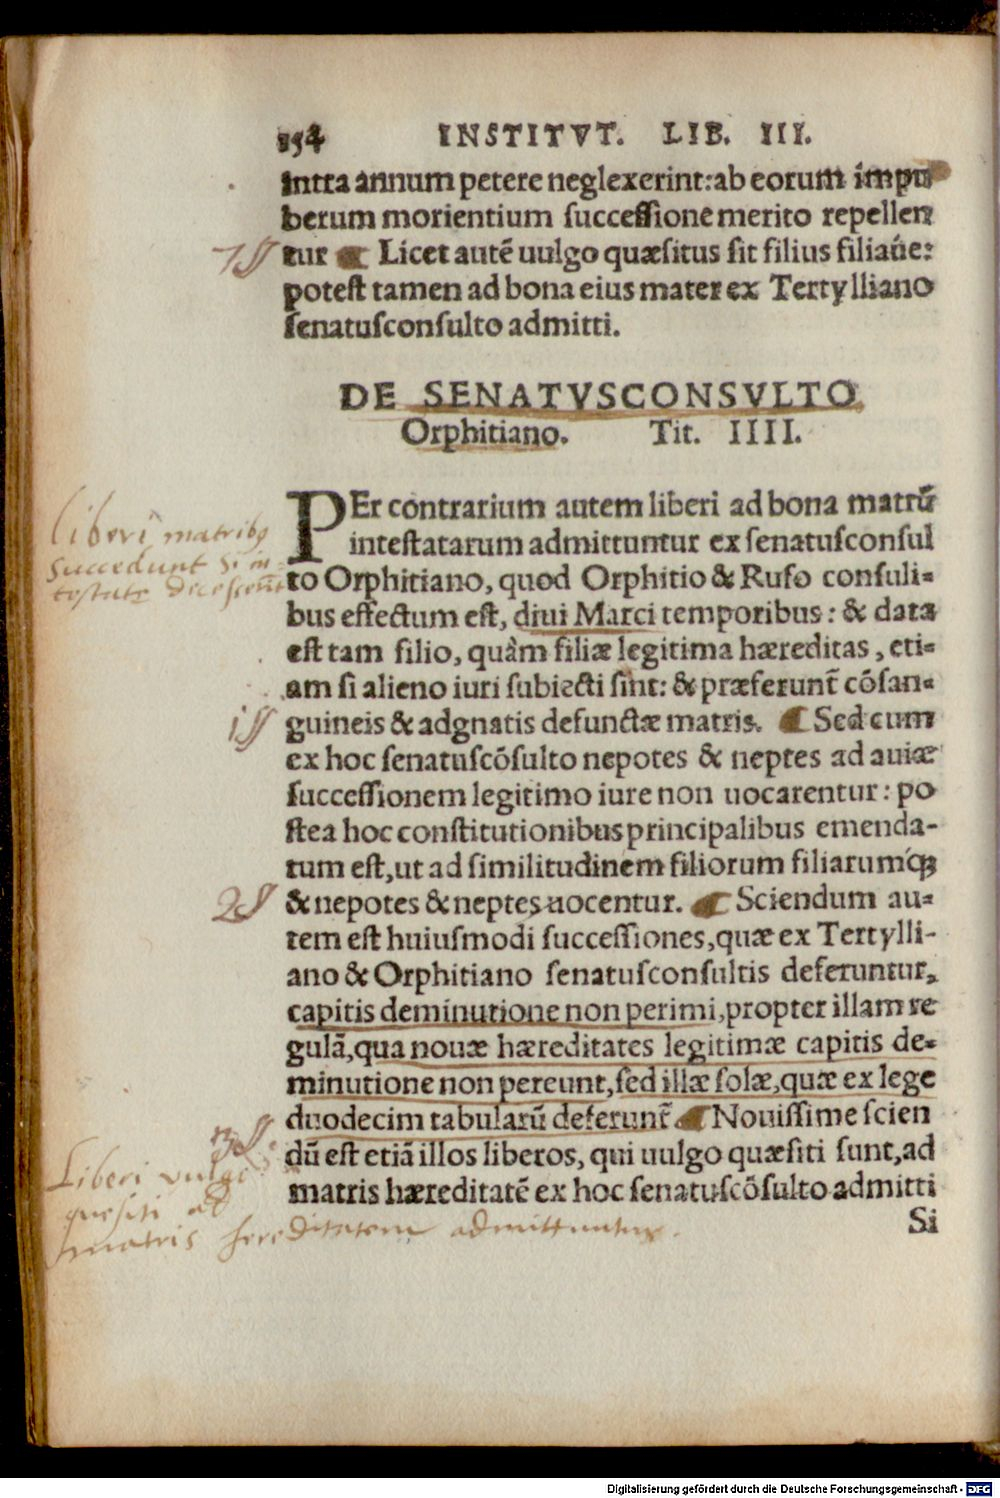 154 INSTITVT. LIB. III.
intra annum petere neglexerint: ab eorum impu
berum morientium successione merito repellen
7 § tur Licet autē uulgo quæsitus sit filius filiaúe:
potest tamen ad bona eius mater ex Tertylliano
senatusconsulto admitti.
DE SENATVSCONSVLTO
Orphitiano. Tit. IIII.
PEr contrarium autem liberi ad bona matrū
intestatarum admittuntur ex senatusconsul
to Orphitiano, quod Orphitio & Rufo consuli-
bus effectum est, diui Marci temporibus: & data
est tam filio, quàm filiæ legitima hæreditas, eti-
am si alieno iuri subiecti sint: & præferunt̄ cōsan-
guineis & adgnatis defunctæ matris. Sed cum
ex hoc senatuscōsulto nepotes & neptes ad auiæ
successionem legitimo iure non uocarentur: po
stea hoc constitutionibus principalibus emenda-
tum est, ut ad similitudinem filiorum filiarumq́;
& nepotes & neptes uocentur. Sciendum au-
tem est huiusmodi successiones, quæ ex Tertylli-
ano & Orphitiano senatusconsultis deferuntur,
capitis deminutione non perimi, propter illam re
gulā, qua nouæ hæreditates legitimæ capitis de-
minutione non pereunt, sed illæ solæ, quæ ex lege
duodecim tabularū deferunt̄ Nouissime scien
dū est etiā illos liberos, qui uulgo quæsiti sunt, ad
matris hæreditatē ex hoc senatuscōsulto admitti
Si
Liberi matribꝰ
succedunt si in-
testate
1 §
2 §
3 §.
Liberi vulgo
quesiti ad
matris hereditatem admittuntur.
Digitalisierung gefördert durch die Deutsche Forschungsgemeinschaft - DFG